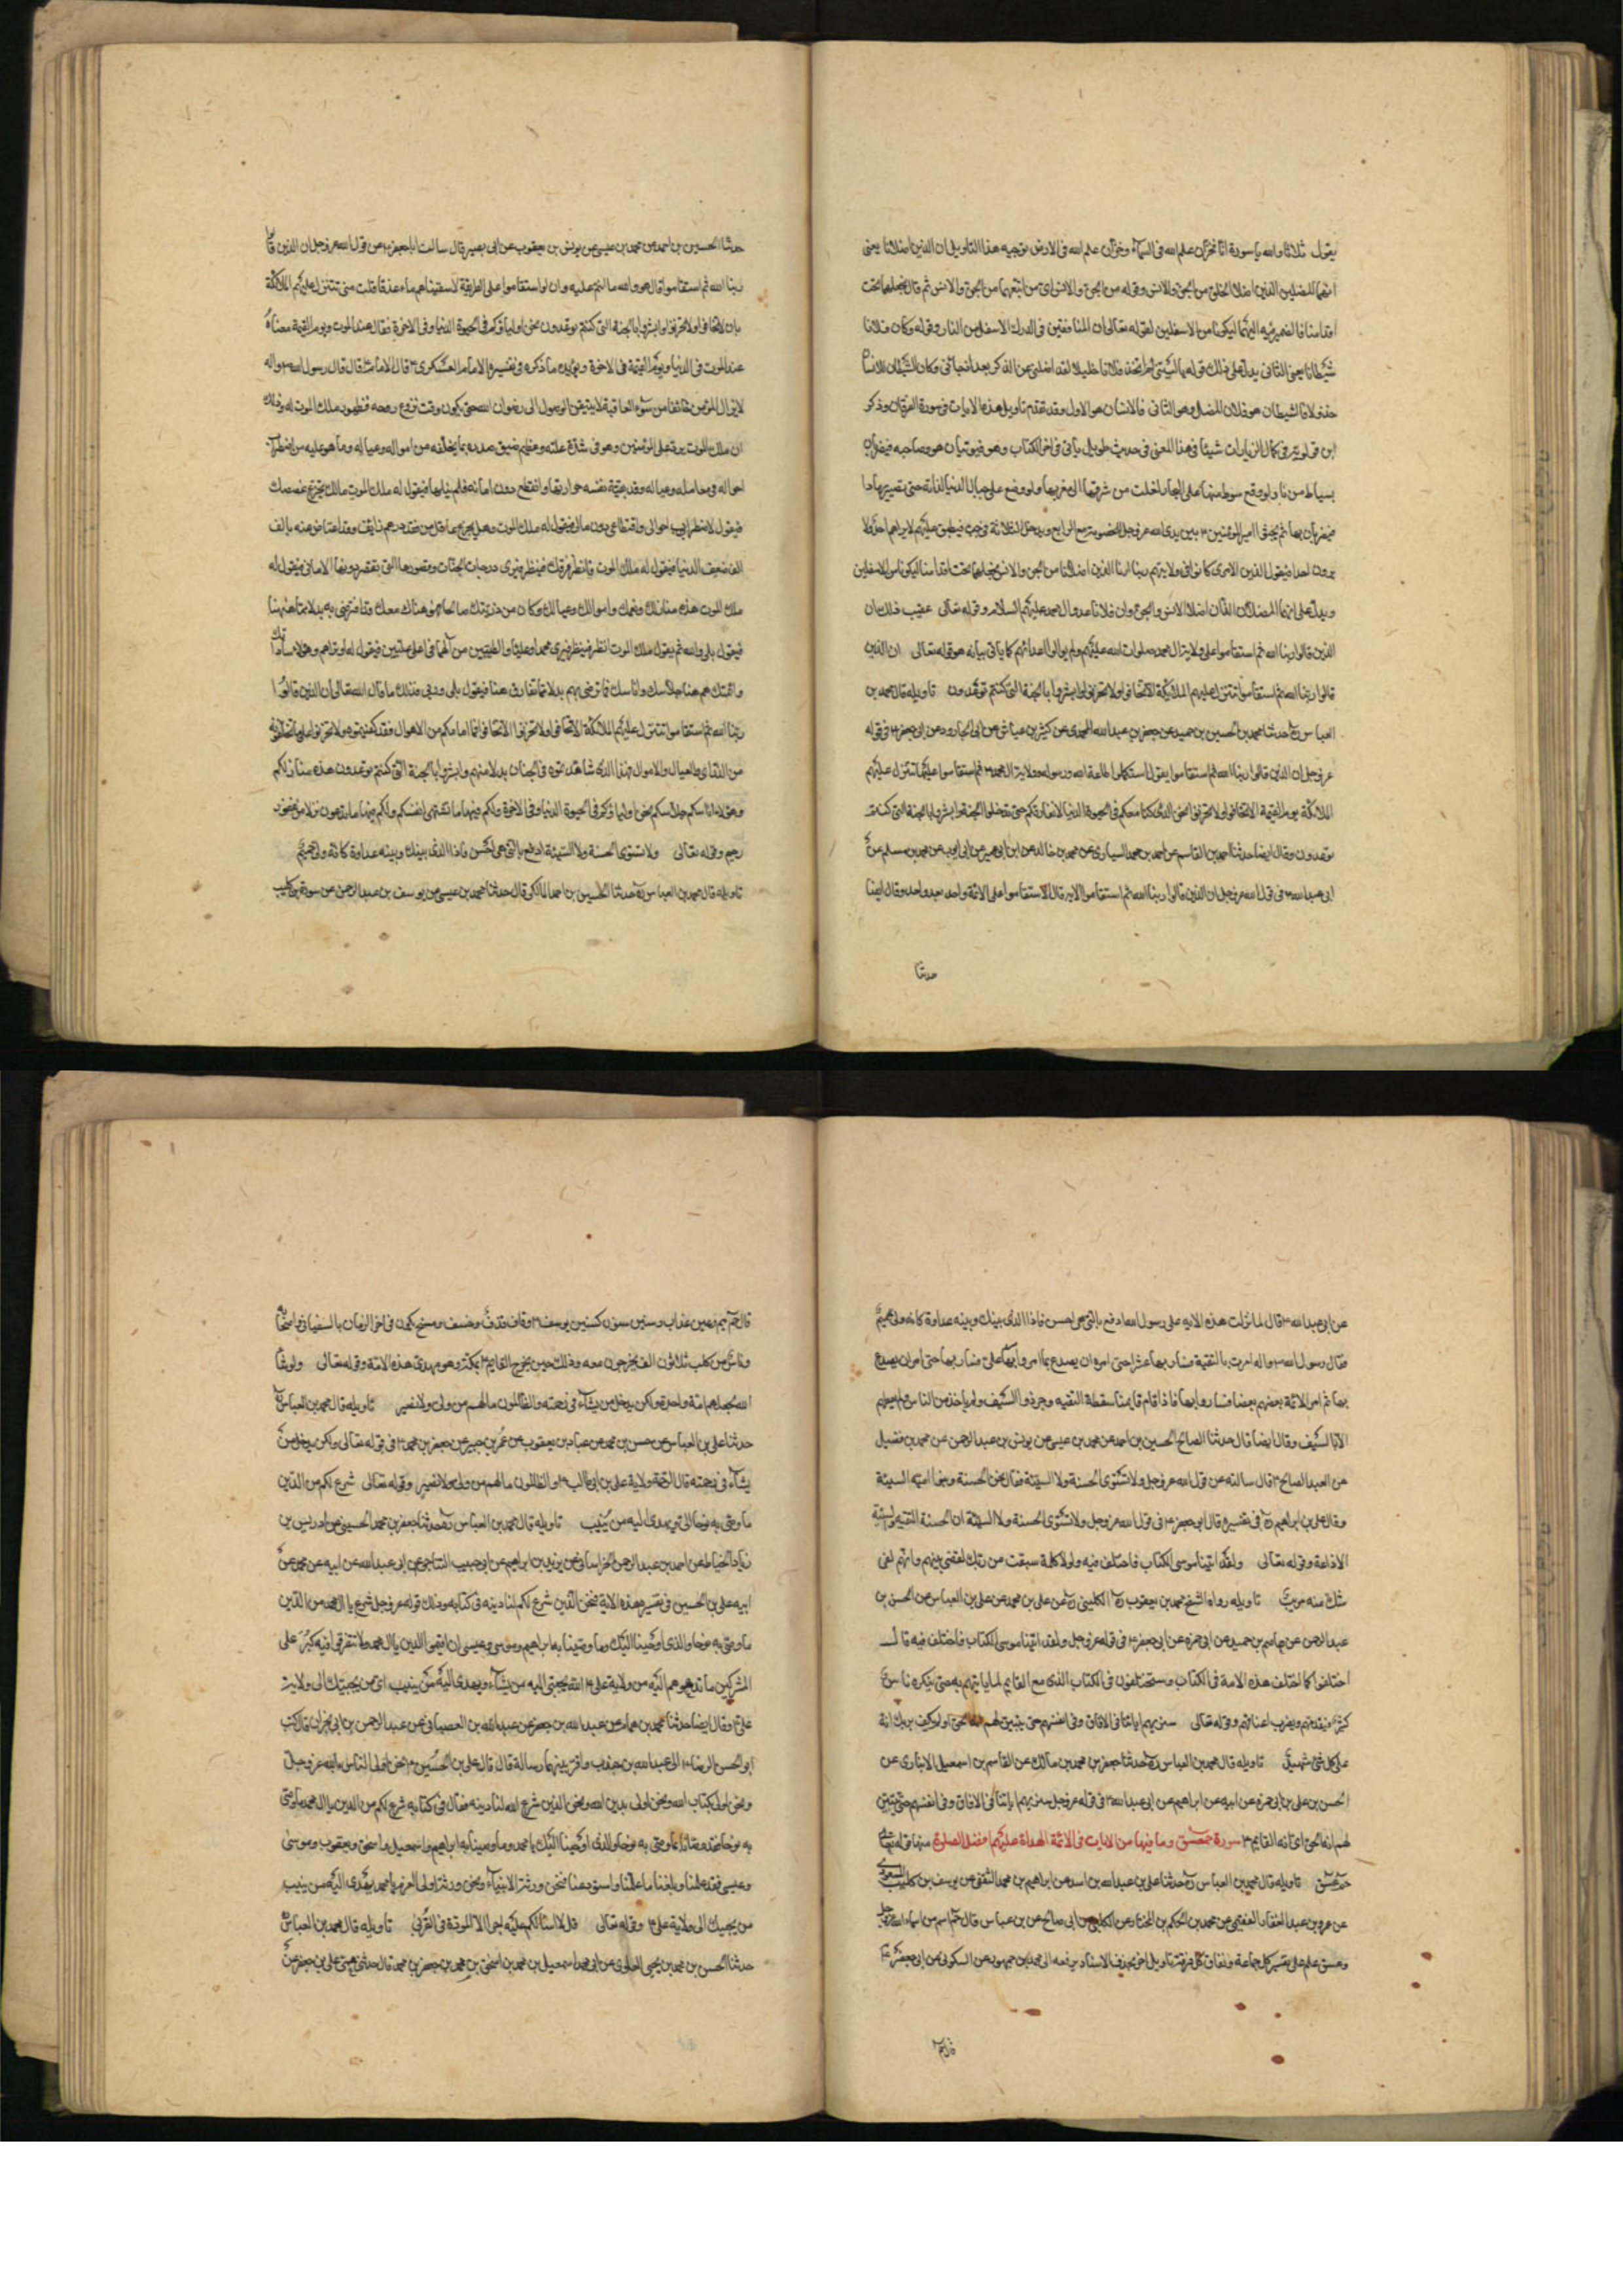 يقول ثلاثا والله يا سورة انا لخزان علم الله في السماء وخزان علم الله في الارض توجيه هذا التاويل ان الذين اضلانا يعني
انهما المضلين الذين اضلا الخلق من الجن والانس وقوله من الجن والانس اي من اتبعهما من الجن والانس ثم قال نجعلهما تحت
اقدامنا فالضمير فيه اليهما ليكونا من الاسفلين لقوله تعالى ان المنافقين في الدرك الاسفل من النار وقوله وكان فلانا
شيطانا يعني الثاني يدل على ذلك قوله يا ليتني لم اتخذ فلانا خليلا لقد اضلني عن الذكر بعد اذ جائني وكان الشيطان للانسان
خذولا فالشيطان هو فلان المضل وهو الثاني فالانسان هو الاول وقد تقدم تاويل هذه الايات في سورة الفرقان وذكر
ابن قولويه في كامل الزيارات شيئا في هذا المعنى في حديث طويل ياتي في اخر الكتاب وهو فيؤتيان هو وصاحبه فيضربان
بسياط من نار لو وقع سوط منها على البحار لغلت من شرقها الى مغربها ولو وضع على جبال الدنيا لذابت حتى تصير رمادا
فيضربان بها ثم يجثو امير المؤمنين ع بين يدي الله عز وجل للخصومة مع الرابع ويدخل الثلاثة في جب فيطبق عليهم لا يراهم احد ولا
يرون احدا فيقول الذين كانوا في ولايتهم ربنا ارنا الذين اضلانا من الجن والانس نجعلهما تحت اقدامنا ليكونا من الاسفلين
ويدل على انهما المضلان اللذان اضلا الانس والجن وان فلانا عدو ال محمد عليهم السلام وقوله تعالى عقيب ذلك ان
الذين قالوا ربنا الله ثم استقاموا على ولاية ال محمد صلوات الله عليهم ولم يوالوا اعدائهم كما ياتي بيانه هو قوله تعالى ان الذين
قالوا ربنا الله ثم استقاموا تتنزل عليهم الملائكة الا تخافوا ولا تحزنوا وابشروا بالجنة التي كنتم توعدون تاويله قال محمد بن
العباس ره حدثنا محمد بن الحسين بن حميد عن جعفر بن عبد الله المحمدي عن كثير بن عياش عن ابي الجارود عن ابي جعفر ع في قوله
عز وجل ان الذين قالوا ربنا الله ثم استقاموا يقول استكملوا طاعة الله ورسوله وولاية ال محمد ثم استقاموا عليها تتنزل عليهم
الملائكة يوم القيمة الا تخافوا ولا تحزنوا نحن الذين كنا معكم في الحيوة الدنيا لا نفارقكم حتى تدخلوا الجنة وابشروا بالجنة التي كنتم
توعدون وقال ايضا حدثنا احمد بن القاسم عن احمد بن محمد السياري عن محمد بن خالد عن ابن ابي عمير عن ابي ايوب عن محمد بن مسلم عن
ابي عبد الله ع في قول الله عز وجل ان الذين قالوا ربنا الله ثم استقاموا الاية قال استقاموا على الائمة واحد بعد واحد وقال ايضا
حدثنا
حدثنا الحسين بن احمد عن محمد بن عيسى عن يونس بن يعقوب عن ابي بصير قال سالت ابا جعفر ع عن قول الله عز وجل ان الذين قالوا
ربنا الله ثم استقاموا قال هو والله ما انتم عليه وان لو استقاموا على الطريقة لاسقيناهم ماء غدقا قلت متى تتنزل عليهم الملائكة
بان لا تخافوا ولا تحزنوا وابشروا بالجنة التي كنتم توعدون نحن اولياؤكم في الحيوة الدنيا وفي الاخرة فقال عند الموت ويوم القيمة معناه
عند الموت في الدنيا ويوم القيمة في الاخرة ويؤيده ما ذكره في تفسيره الامام العسكري ع قال الامام ع قال قال رسول الله ص واله
لا يزال المؤمن خائفا من سوء العاقبة لا يتيقن الوصول الى رضوان الله حتى يكون وقت نزوع روحه وظهور ملك الموت له وذلك
ان ملك الموت يرد على المؤمنين وهو في شدة علته وعظيم ضيق صدره بما يخلفه من امواله وعياله وما هو عليه من اضطراب
احواله في معامليه وعياله وقد بقيت نفسه حزازتها وانقطع دون امانيه فلم ينلها فيقول له ملك الموت مالك تجرع غصصك
فيقول لاضطراب احوالي واقتطاعي دون مالي فيقول له ملك الموت وهل يجزع عاقل من فقد درهم زايف وقد اعتاض عنه بالف
الف ضعف الدنيا فيقول لا فيقول له ملك الموت فانظر فوقك فينظر فيرى درجات الجنان وقصورها التي تقصر دونها الاماني فيقول له
ملك الموت هذه منازلك ونعمك واموالك وعيالك ومن كان من ذريتك صالحا فهو هناك معك افترضى به بدلا مما هيهنا
فيقول بلى والله ثم يقول ملك الموت انظر فينظر فيرى محمدا وعليا والطيبين من آلهما في اعلى عليين فيقول له اوتراهم هؤلاء ساداتك
وائمتك هم هنا جلاسك واناسك افما ترضى بهم بدلا مما تفارق هنا فيقول بلى وربي فذلك ما قال الله تعالى ان الذين قالوا
ربنا الله ثم استقاموا تتنزل عليهم الملائكة الا تخافوا ولا تحزنوا الا تخافوا فما امامكم من الاهوال فقد كفيتموه ولا تحزنوا على ما تخلفونه
من الذراري والعيال والاموال فهذا الذي شاهدتموه في الجنان بدلا منهم وابشروا بالجنة التي كنتم توعدون هذه منازلكم
وهؤلاء اناسكم وجلاسكم نحن اولياؤكم في الحيوة الدنيا وفي الاخرة ولكم فيها ما تشتهي انفسكم ولكم فيها ما تدعون نزلا من غفور
رحيم وقوله تعالى ولا تستوي الحسنة ولا السيئة ادفع بالتي هي احسن فاذا الذي بينك وبينه عداوة كانه ولي حميم
تاويله قال محمد بن العباس ره حدثنا الحسين بن احمد المالكي قال حدثنا محمد بن عيسى عن يوسف بن عبد الرحمن عن سورة بن كليب
عن ابي عبد الله ع قال لما نزلت هذه الاية على رسول الله ادفع بالتي هي احسن فاذا الذي بينك وبينه عداوة كانه ولي حميم
فقال رسول الله ص واله امرت بالتقية فسار بها عشرا حتى امر ان يصدع بما امر وامر بها علي فسار بها حتى امر ان يصدع
بها ثم امر الائمة بعضهم بعضا فساروا بها فاذا قام قايمنا سقطت التقية وجرد السيف ولم ياخذ من الناس ولم يعطهم
الا بالسيف وقال ايضا قال حدثنا الصالح الحسين بن احمد عن محمد بن عيسى عن يونس بن عبد الرحمن عن محمد بن فضيل
عن العبد الصالح ع قال سالته عن قول الله عز وجل ولا تستوي الحسنة ولا السيئة فقال نحن الحسنة وبنو امية السيئة
وقال علي بن ابراهيم ره في تفسيره قال ابو جعفر ع في قول الله عز وجل ولا تستوي الحسنة ولا السيئة ان الحسنة التقية والسيئة
الاذاعة وقوله تعالى ولقد اتينا موسى الكتاب فاختلف فيه ولولا كلمة سبقت من ربك لقضي بينهم وانهم لفي
شك منه مريب تاويله رواه الشيخ محمد بن يعقوب ره الكليني ره عن علي بن محمد عن علي بن العباس عن الحسن بن
عبد الرحمن عن عاصم بن حميد عن ابي حمزه عن ابي جعفر ع في قوله عز وجل ولقد اتينا موسى الكتاب فاختلف فيه قال
اختلفوا كما اختلف هذه الامة في الكتاب وسيختلفون في الكتاب الذي مع القايم لما ياتيهم به حتى ينكره ناس
كثير فيقدمهم ويضرب اعناقهم وقوله تعالى سنريهم اياتنا في الافاق وفي انفسهم حتى يتبين لهم انه الحق اولم يكف بربك انه
على كل شئ شهيد تاويله قال محمد بن العباس ره حدثنا جعفر بن محمد بن مالك عن القاسم بن اسمعيل الانباري عن
الحسن بن علي بن ابي حمزه عن ابيه عن ابراهيم عن ابي عبد الله ع في قوله عز وجل سنريهم اياتنا في الافاق وفي انفسهم حتى يتبين
لهم انه الحق اي انه القايم ع سورة حمعسق وما فيها من الايات في الائمة الهداة عليهم افضل الصلوة منها قوله تعالى
حم عسق تاويله قال محمد بن العباس ره حدثنا علي بن عبد الله بن اسد عن ابراهيم بن محمد الثقفي عن يوسف بن كليب المسعودي
عن عمرو بن عبد الغفار الفقيمي عن محمد بن الحكم بن المختار عن الكلبي عن ابي صالح عن بن عباس قال حم اسم من اسماء الله عز وجل
وعسق علم علي بفسق كل جماعة ونفاق كل فرقة تاويل اخر بحذف الاسناد يرفعه الى محمد بن جمهور عن السكوني عن ابي جعفر ع
قال حم
قال حم حميم وعين عذاب وسين سنون كسنين يوسف ع وقاف قذف وخسف ومسخ يكون في اخر الزمان بالسفياني واصحابه
وناس من كلب ثلثون الف يخرجون معه وذلك حين يخرج القايم ع بمكة وهو مهدي هذه الامة وقوله تعالى ولو شاء
الله لجعلهم امة واحدة ولكن يدخل من يشاء في رحمته والظالمون مالهم من ولي ولا نصير تاويله قال محمد بن العباس ره
حدثنا علي بن العباس عن حسن بن محمد عن عباد بن يعقوب عن عمر بن جبير عن جعفر بن محمد ع في قوله تعالى ولكن يدخل من
يشاء في رحمته قال الرحمة ولاية علي بن ابي طالب ع والظالمون مالهم من ولي ولا نصير وقوله تعالى شرع لكم من الدين
ما وصى به نوحا الى ويهدي اليه من ينيب تاويله قال محمد بن العباس ره حدثنا جعفر بن محمد الحسيني عن ادريس بن
زياد الحناط عن احمد بن عبد الرحمن الخراساني عن يزيد بن ابراهيم عن ابي حبيب النباجي عن ابي عبد الله عن ابيه عن محمد عن
ابيه علي بن الحسين في تفسير هذه الاية نحن الذين شرع لكم لنا دينه في كتابه وذلك قوله عز وجل شرع يا ال محمد من الدين
ما وصى به نوحا والذي اوحينا اليك وما وصينا به ابراهيم وموسى وعيسى ان اقيموا الدين يا ال محمد ولا تتفرقوا فيه كبر على
المشركين ما تدعوهم اليه من ولاية علي ع الله يجتبي اليه من يشاء ويهدي اليه من ينيب اي من يجيبك الى ولاية
علي ع وقال ايضا حدثنا محمد بن همام عن عبد الله بن جعفر عن عبد الله بن القصباني عن عبد الرحمن بن ابي نجران قال كتب
ابو الحسن الرضا ع الى عبد الله بن جندب واقرانيها رسالة قال قال علي بن الحسين ع نحن اولى الناس بالله عز وجل
ونحن اولى بكتاب الله ونحن اولى بدين الله ونحن الذين شرع الله لنا دينه فقال في كتابه شرع لكم من الدين يا ال محمد ما وصى
به نوحا فقد وصانا بما وصى به نوحا والذي اوحينا اليك يا محمد وما وصينا به ابراهيم واسمعيل واسحق ويعقوب وموسى
وعيسى فقد علمنا وبلغنا ما علمنا واستودعنا فنحن ورثة الانبياء ونحن ورثة اولى العزم يا محمد يهدي اليه من ينيب
من يجيبك الى ولاية علي ع وقوله تعالى قل لا اسئلكم عليه اجرا الا المودة في القربى تاويله قال محمد بن العباس ره
حدثنا الحسن بن محمد بن يحيى العلوي عن ابي محمد اسمعيل بن محمد بن اسحق بن محمد بن جعفر بن محمد قال حدثني عمي علي بن جعفر عن